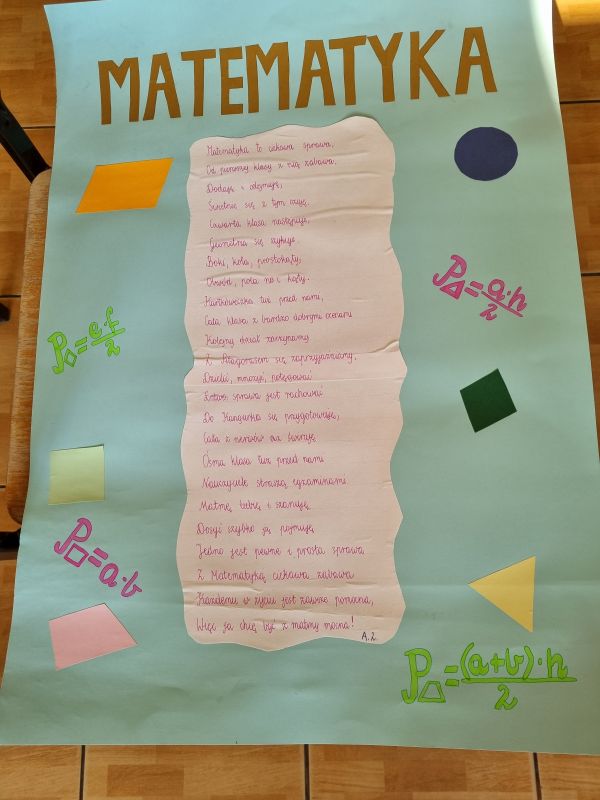 MATEMATYKA
Matematyka to ciekawa sprawa,
Od pierwszej klasy z nią zabawa.
Dodaję i odejmuję,
Świetnie się z tym czuję.
Czwarta klasa następuje,
Geometria się szykuje.
Boki, koła, prostokąty,
Obwód, pola no i kąty.
Kartkóweczka tuż przed nami,
Cała klasa z bardzo dobrymi ocenami
Kolejny dział zaczynamy
Z Pitagorasem się zaprzyjaźniamy,
Dzielić, mnożyć, potęgować
Łatwa sprawa jest rachować
Do Kangurka się przygotowuję,
Cała z nerwów aż
Ósma klasa tuż przed nami
Nauczyciele straszą egzaminami.
Matmę lubię i szanuję
Dosyć szybko ją pojmuję
Jedno jest pewne i prosta sprawa
Z Matematyką ciekawa zabawa
Każdemu w życiu jest zawsze pomocna,
Więc ja chcę być z matmy mocna!
A.Z.
P◇=e·f/2
P□=a·b
P△=a·h/2
P⏢=(a+b)·h/2